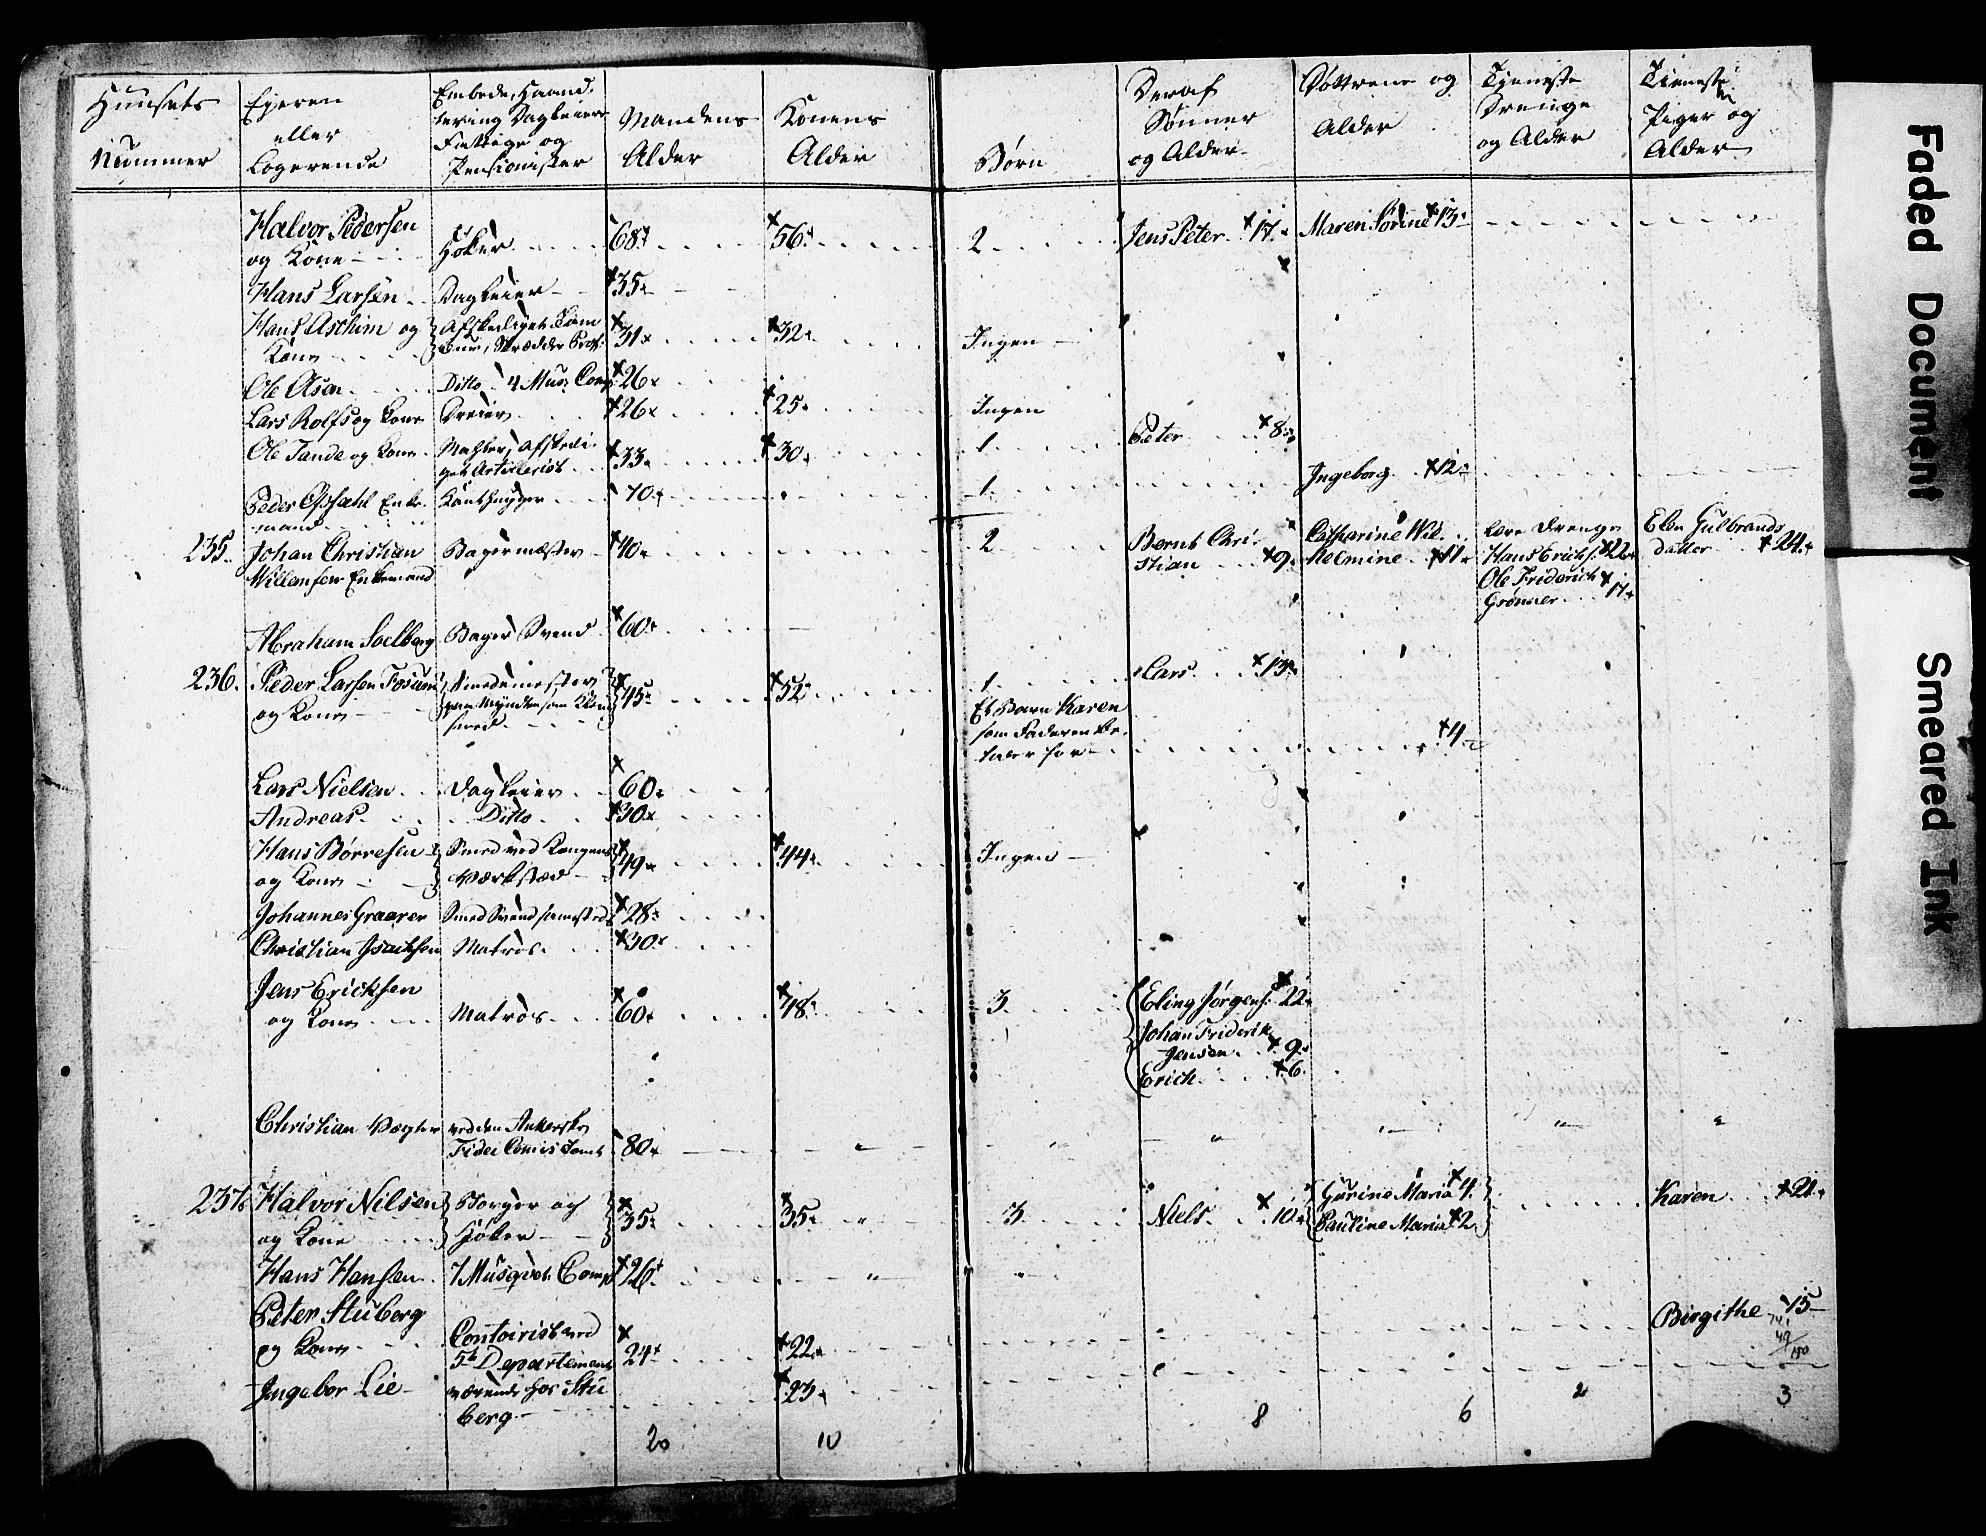 Huusets Nummer
Ejeren eller Logerende
Embede, Haandtering Dagleiere Fattige og Pensionister
Mandens Alder
Konens Alder
Børn
Deraf Sønner og Alder
Døttrene og Alder
Tjeneste Drenge og Alder
Tieneste Piger og Alder
Halvor Pedersen og Kone Høker 68 56 2 Jens Peter 17 Maren Sørine 13
Hans Larsen Dagleier 35
Hans Aschim og Kone Afskediget Tambour, Skrædder Prof. 31 32 Ingen
Ole Olsen Ditto 4 Musq. Comp. 26
Lars Rolfs og Kone Dreier 26 25 Ingen
Ole Tande og Kone Mahler, Afskediget Artilerist 33 30 1 Peter 8
Peder Opsahl Enkemand 70 1 Ingeborg 12
235. Johan Christian Willemsen Enkemand Bagermæster 40 2 Bernt Christian 9 Catharine Wilhelmine 11 Lære Drenge Hans Erichs. 22 Ole Friderich Grønner 17 Elen Gulbrands datter 24
Abraham Soelberg Bager Svend 60
236. Peder Larsen Fosum og Kone Smedemester 45 52 1 Lars 13
Et Barn Karen som Faderen betaler for 4
Lars Nielsen Dagleier 60
Andreas Ditto 30
Hans Børresen og Kone Smed ved Kongens Værksted 49 44 Ingen
Johannes Graarer Smed Svend sammested 28
Christian Isachsen Matros 30
Jens Ericksen og Kone Matros 60 48 3 Eling Jørgens. 22
Johan Friderik Jensen 9
Erich 6
Christian Vægter ved den Ankerske Fidei Comis Tomt 80
237. Halvor Nilsen og Kone Borger og Høker 35 35 3 Niels 10 Gurine Maria 4 Karen 21
Pauline Maria 2
Hans Hansen 7 Musqvet. Comp. 26
Peter Stuberg og Kone Contoirist ved 5te Departement 24 22 Birgithe 15
Ingebor Lie værende hos Stuberg 23
20 10 8 6 2 3
Faded Document
Smeared Ink